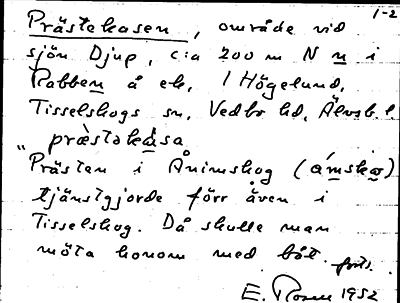 1-2
Prästekasen, område vid
sjön Djup, c:a 200 m N n i
Rabben å ek. 1 Högelund,
Tisselskogs sn, Vedbo hd, Älvsb. l.
præ̀stəkása
"Prästen i Ånimskog (ámskɷ)
tjänstgjorde förr även i
Tisselskog. Då skulle man
möta honom med båt. forts.
E. Rosen 1952